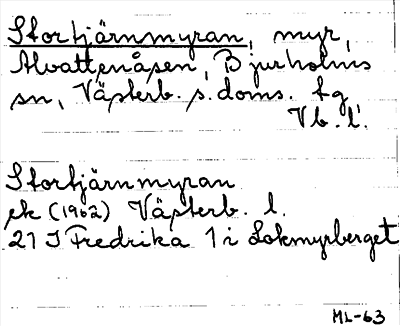 Stortjärnmyran, myr,
Alvattenåsen, Bjurholms
sn, Västerb. s. doms. tg
Vb. l.
Stortjärnmyran
ek (1962) Västerb. l.
21 I Fredrika 1 i Lokmyrberget
ML-63